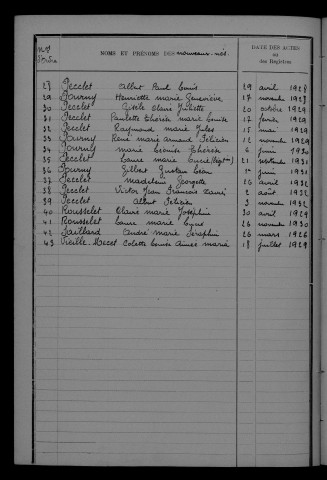 Nos d'Ordre
NOMS ET PRÉNOMS DES nouveaux-nés.
DATE DES ACTES
ou
des Registres
Pecclet Albert Paul Louis 29 avril 1928
29 Pourny Henriette Marie Geneviève 17 novembre 1928
30 Pecclet Gisèle Juliette 20 octobre 1929
31 Pecclet Paulette Thérèse Marie Louise 17 février 1929
32 Pecclet Raymond Marie Jules 15 mai 1929
33 Pourny René Marie Armand Félicien 12 novembre 1929
34 Pourny Marie Thérèse 6 juin
35 Pecclet Laure Marie 21 septembre 1931
36 Pourny Gilbert Gustave Léon 1er juin 1931
37 Pecclet Madeleine Georgette 26 avril 1932
38 Pecclet Victor Jean François Xavier 2 août 1932
39 Pecclet Albert Félicien 3 novembre 1932
40 Rousselet Claire Marie Joséphine 30 avril 1929
41 Rousselet Marie 26 novembre 1930
42 Paillard André Marie Séraphin 26 mars 1926
43 Vieille-Mecet Colette Louise Aimée Marie 18 juillet 1929